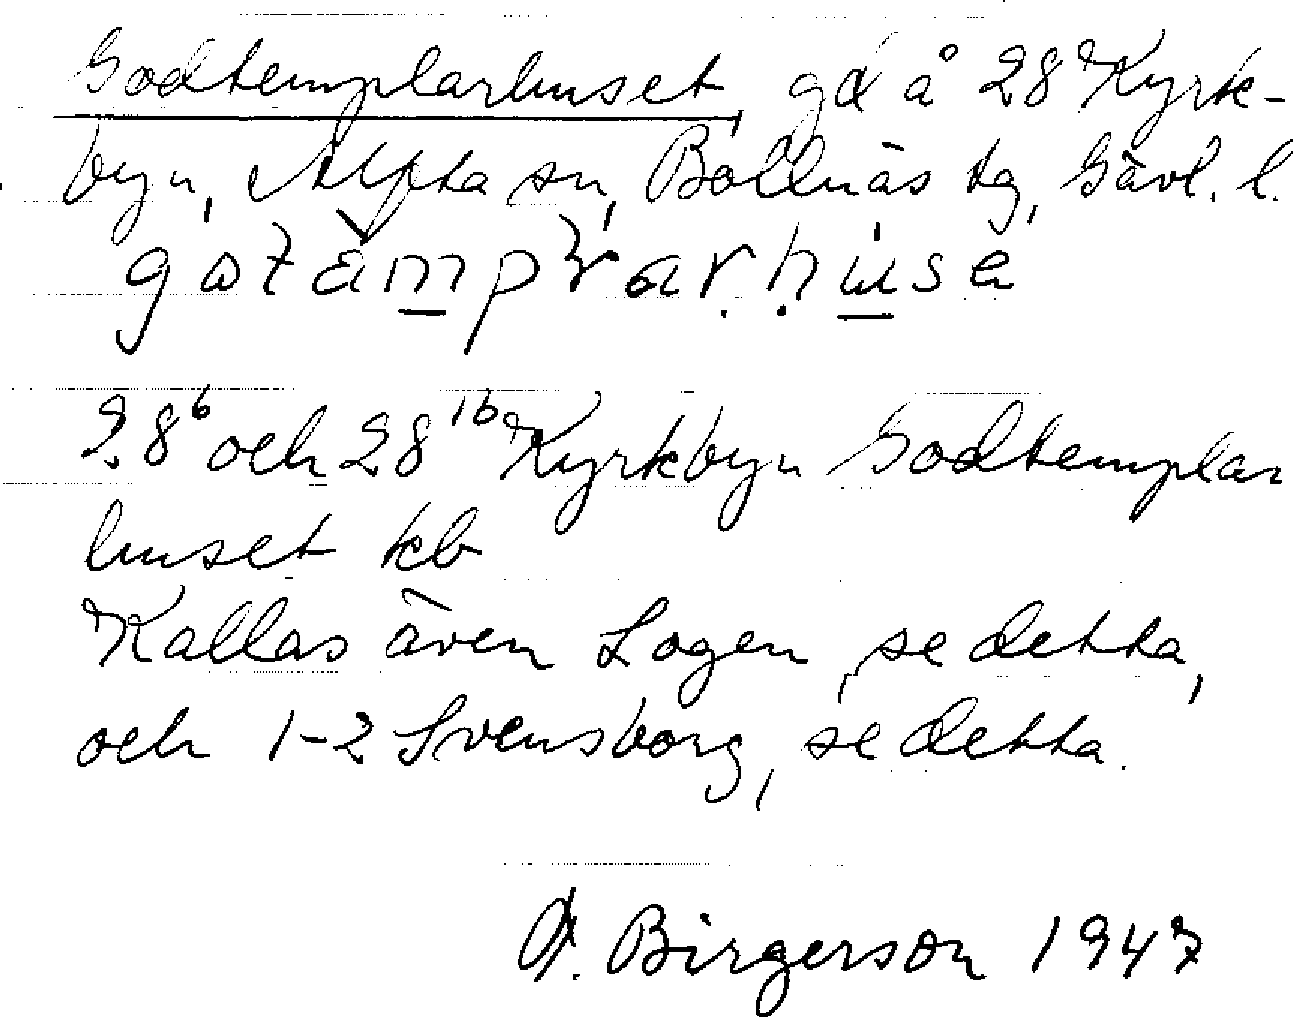 Godtemplarhuset, gd å 28 Kyrk-
byn, Alfta sn, Bollnäs tg, Gävl. l.
28⁶ och 28¹⁶ Kyrkbyn Godtemplar
huset kb
Kallas även Logen, se detta,
och 1-2 Svensborg, se detta.
Birgerson 1947